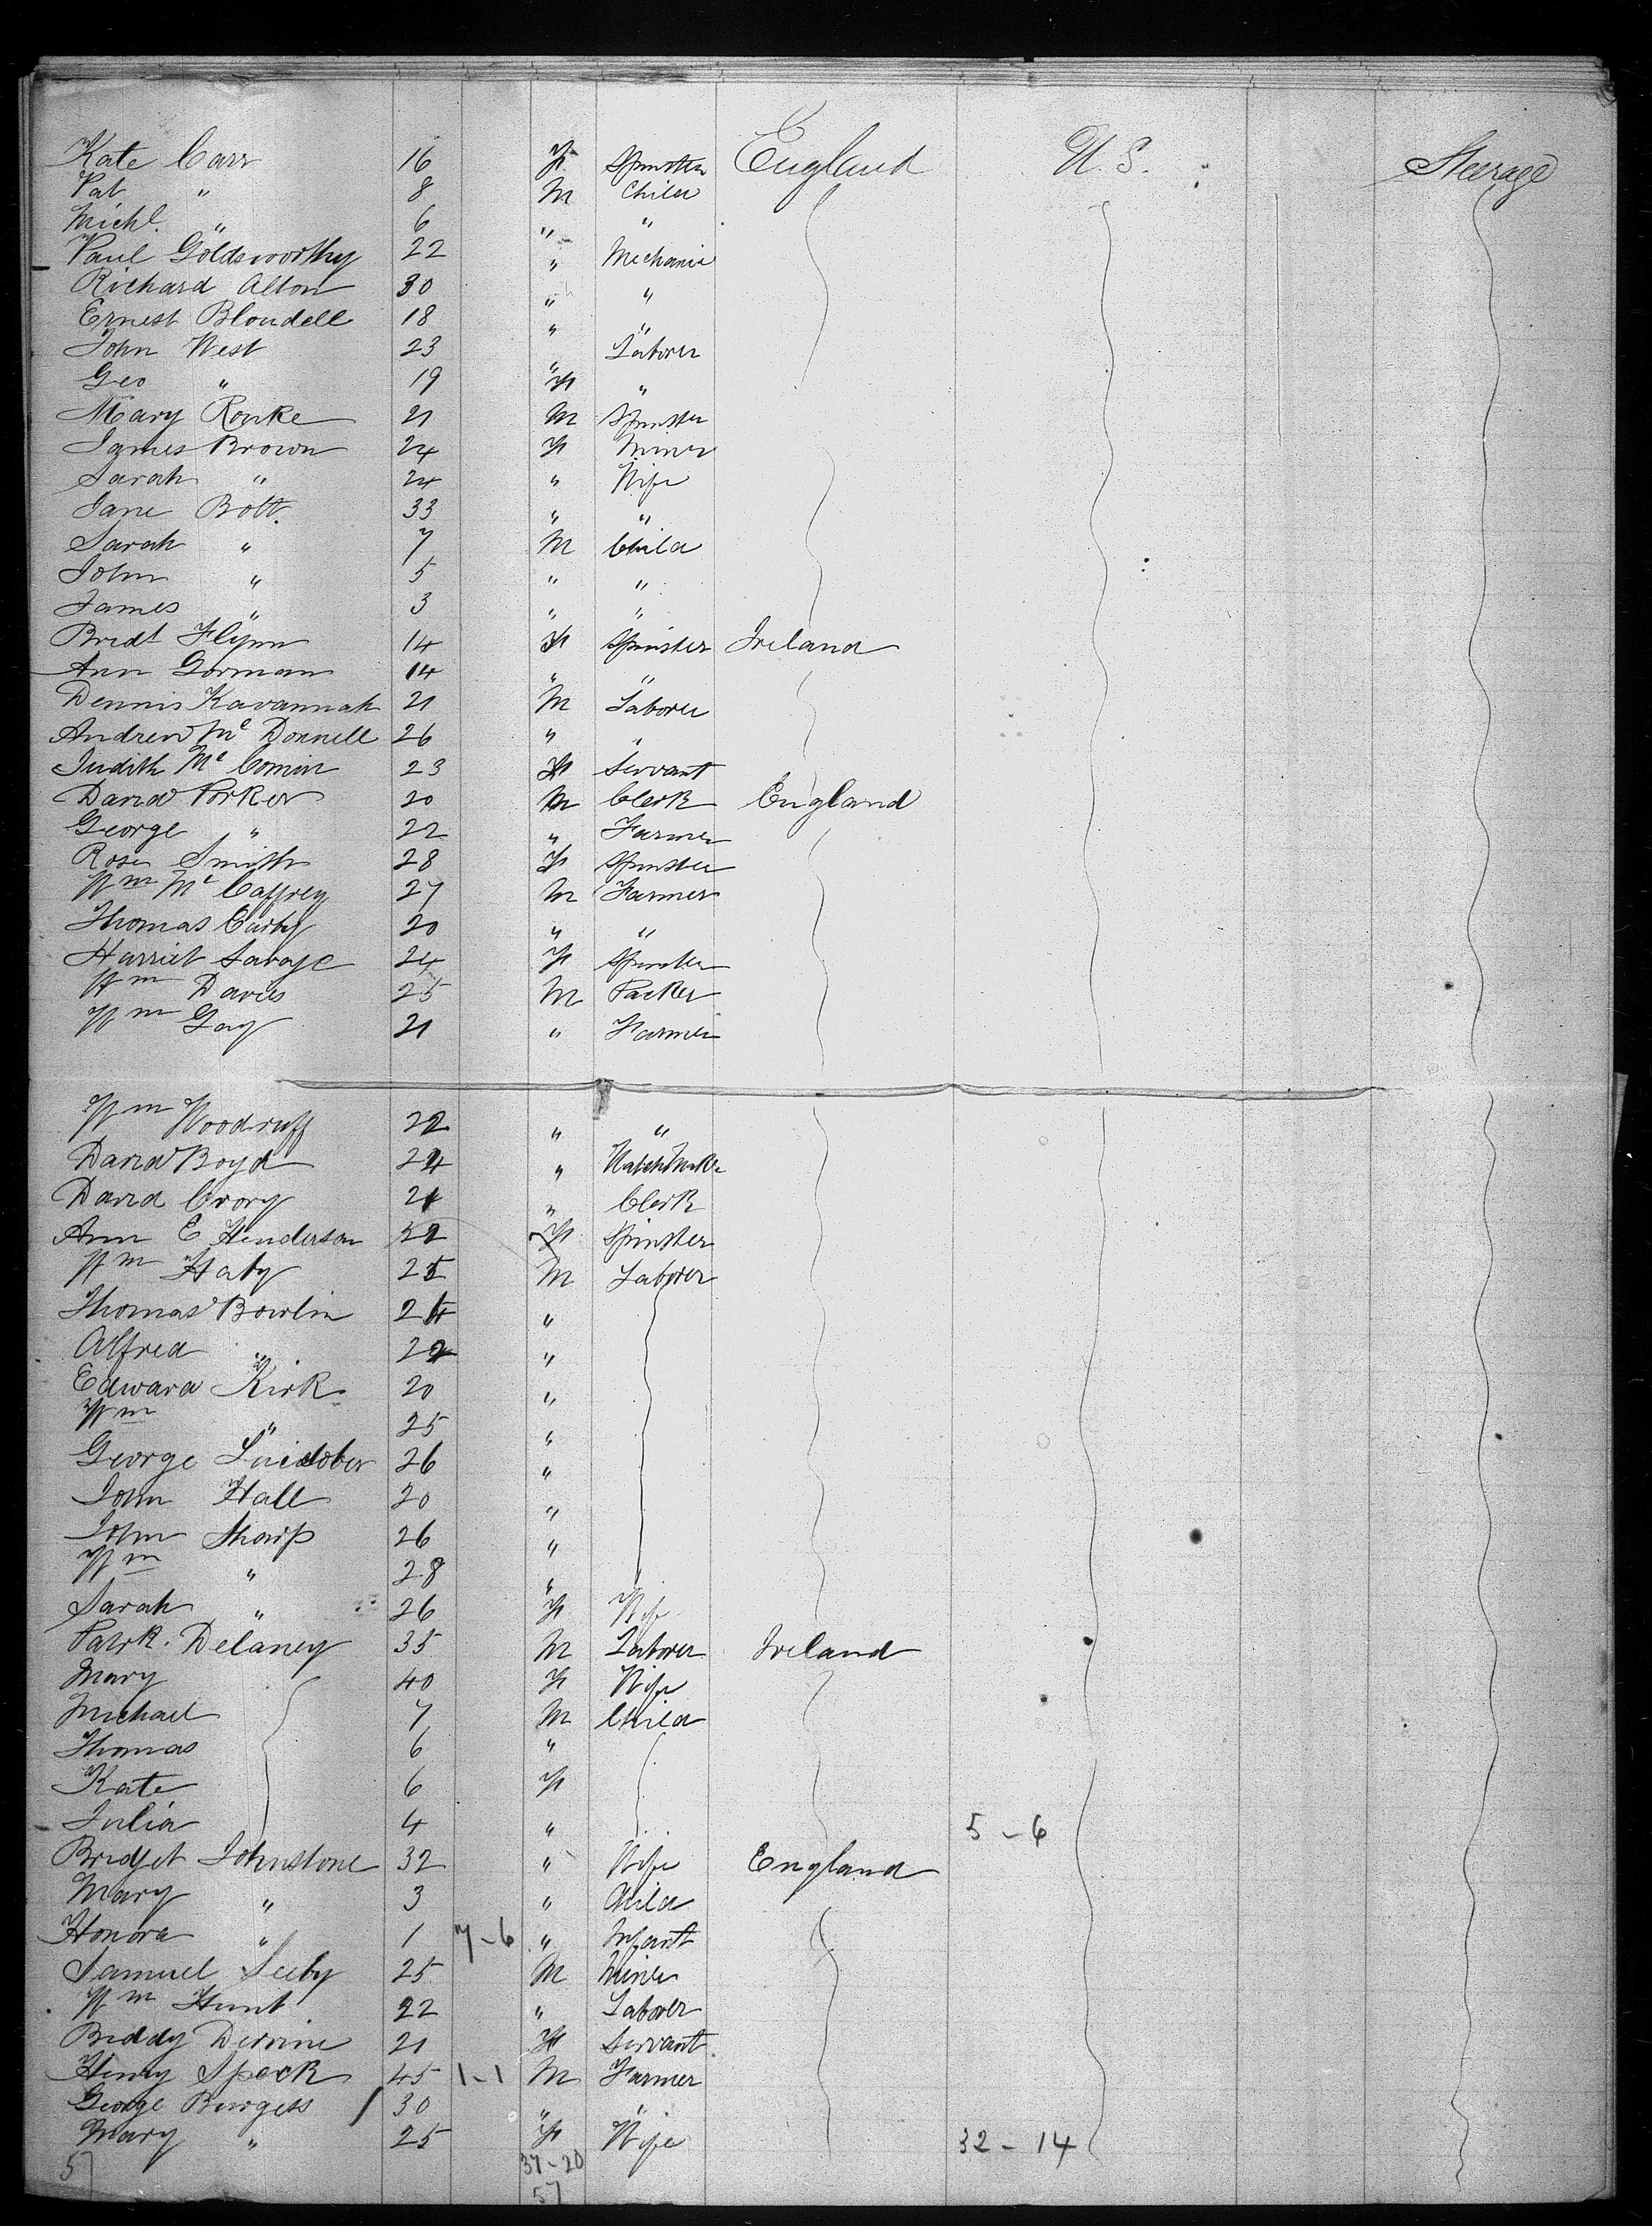 Kate Carr 16 F Spinster England U.S. Steerage
Pat " 8 M Child
Michl. " 6 " "
Paul Goldsworthy 22 " Mechanic
Richard Alton 30 " "
Ernest Blondell 18 " "
John West 23 " Laborer
Geo " 19 F "
Mary Rourke 21 M Spinster
James Brown 24 F Miner
Sarah " 24 " Wife
Jane Bott. 33 " "
Sarah " 7 M Child
John " 5 " "
James " 3 " "
Bridt Flynn 14 F Spinster Ireland
Ann Gorman 14 " "
Dennis Kavannah 21 M Laborer
Andrew Mc Donnell 26 " "
Judith Mc Comin 23 F Servant
David Porker 20 M Clerk England
George " 22 " Farmer
Rose Smith 28 F Spinster
Wm Mc Caffrey 27 M Farmer
Thomas Carby 20 " "
Harriet Savage 24 F Spinster
Wm Davies 25 M Packer
Wm Gay 21 " Farmer
Wm Woodruff 22 " "
David Boyd 24 " Watchmaker
David Crory 21 " Clerk
Ann E Henderson 22 F Spinster
Wm Haty 25 M Laborer
Thomas Bowlin 24 "
Alfred " 22 "
Edward Kirk 20 "
Wm " 25 "
George 26 "
John Hall 20 "
John Sharp 26 "
Wm " 28 "
Sarah " 26 F Wife
Patrk. Delaney 35 M Laborer Ireland
Mary 40 F Wife
Michael 7 M Child
Thomas 6 "
Kate 6 F
Julia 4 " 5-6
Bridget Johnstone 32 " Wife England
Mary " 3 " Child
Honora " 1 7-6 " Infant
Samuel Seeby 25 M Miner
Wm Hunt 22 " Laborer
Biddy Dervine 21 F Servant
Henry Speck 45 1-1 M Farmer
George Burgess 30 " "
Mary " 25 F Wife 32-14
57 37-20
57